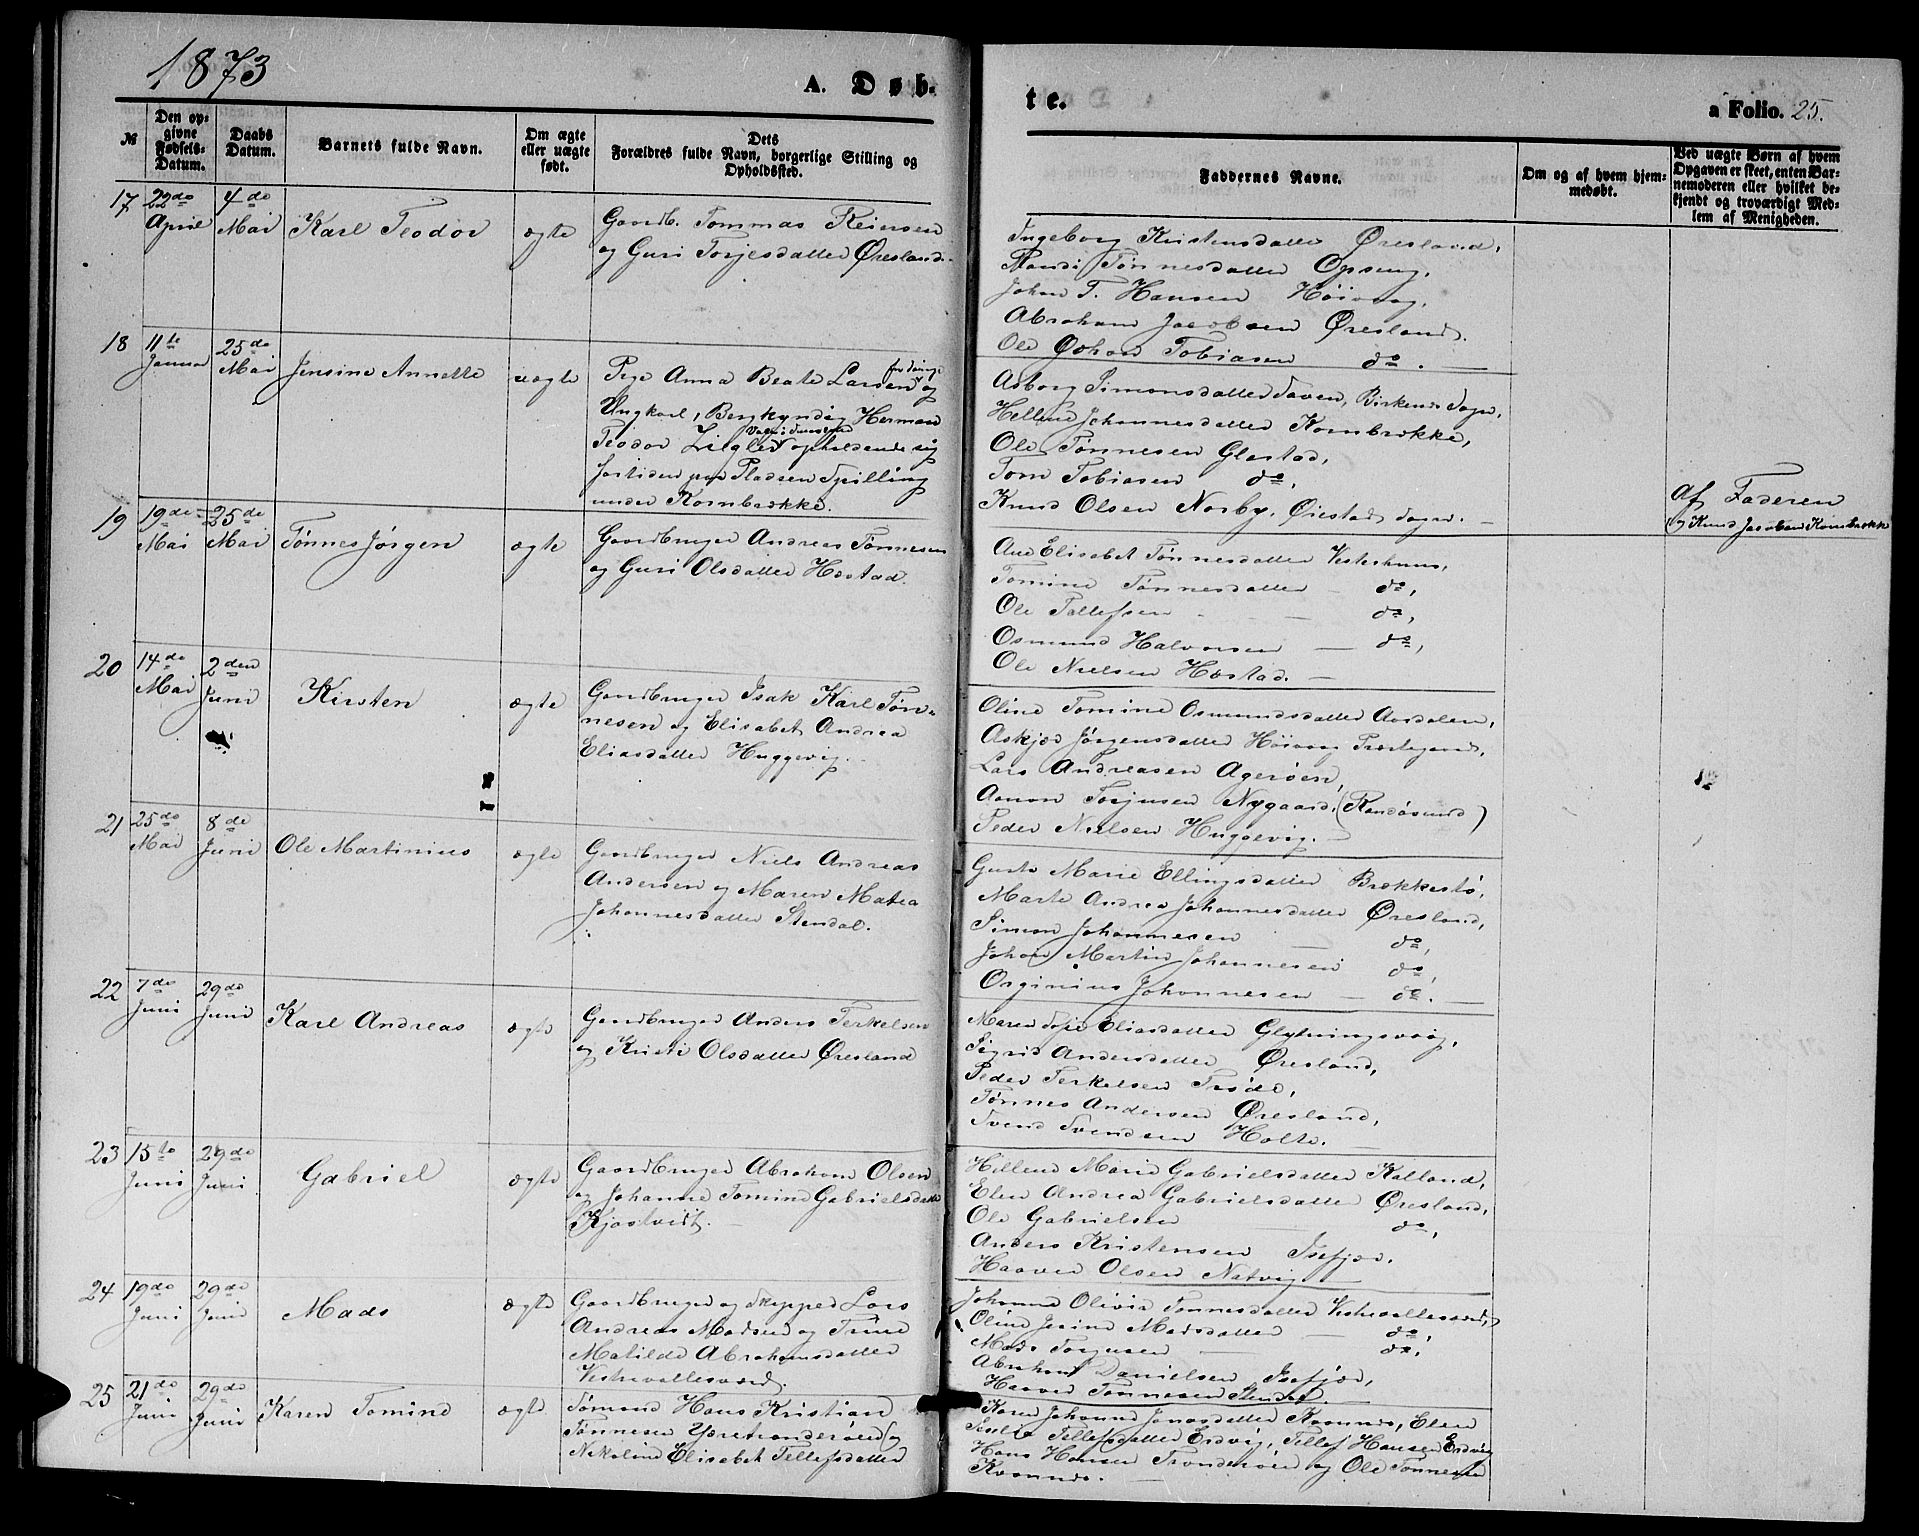 1873
A. Døb-
te.
a Folio. 25.
№
Den op-
givne
Fødsels-
Datum.
Daabs
Datum.
Barnets fulde Navn.
Om ægte
eller uægte
født.
Dets
Forældres fulde Navn, borgerlige Stilling og
Opholdssted.
Faddernes Navne.
Om og af hvem hjem-
medøbt.
Ved uægte Børn af hvem
Opgaven er skeet, enten Bar-
nemoderen eller hvilket be-
kjendt og troværdigt Med-
lem af Menigheden.
17
22de
April
4de
Mai
Karl Teodor
ægte
Gaardb. Tommas Reiersen
og Guri Torjesdatter Øresland.
Ingeborg Kristensdatter Øresland,
Randi Tønnesdatter Opsung,
Johan T. Hansen Höivaag,
Abraham Jacobsen Øresland,
Ole Johan Tobiasen do.
18
11te
Januar
25de
Mai
Jensine Annette
uægte
Pige Anna Beate Larsen og
Ungkarl, Bergkyndig Herman
Teodor Ziegler opholdende sig
fortiden paa Pladsen Spilling
under Kornbrække.
Asborg Simonsdatter Birkenes Sogn,
Hellene Johannesdatter Kornbrække,
Ole Tønnesen Glastad,
Tom Tobiasen do,
Knud Olsen Norby, Øiestad Sogn.
Af Faderen
og Knud Jacobsen Kornbrække
19
19de
Mai
25de
Mai
Tønnes Jørgen
ægte
Gaardbruger Andreas Tønnesen
og Guri Olsdatter Hæstad.
Ane Elisabet Tønnesdatter Vesterhuus,
Tomine Tønnesdatter do,
Ole Tellefsen do,
Osmund Halvorsen do,
Ole Nielsen Hæstad.
20
14de
Mai
2den
Juni
Kirsten
ægte
Gaardbruger Isak Karl Tøn-
nesen og Elisabet Andrea
Eliasdatter Huggevig.
Oline Tomine Osmundsdatter Aasdalen,
Askjær Jørgensdatter Höivaag Præstegaard,
Lars Andreasen Agerøen,
Aanon Torjusen Nygaard, (Randøsund)
Peder Nielsen Huggevig.
21
25de
Mai
8de
Juni
Ole Martinius
ægte
Gaardbruger Niels Andreas
Andersen og Maren Matea
Johannesdatter Stendal.
Guste Marie Ellingsdatter Brækkestø,
Marte Andrea Johannesdatter Øresland,
Simon Johannesen do,
Johan Martin Johannesen do,
Orginius Johannesen do.
22
7de
Juni
29de
Juni
Karl Andreas
ægte
Gaardbruger Anders Terkelsen
og Kristi Olsdatter Øresland
Maren Eliasdatter
Sigrid Andersdatter Øresland,
Peder Terkelsen Trøde,
Tønnes Andersen Øresland,
Svend Svendsen Holte.
23
15te
Juni
29de
Juni
Gabriel
ægte
Gaardbruger Abraham Olsen
og Johanne Tomine Gabrielsdatter
Kjøstvedt.
Hellene Marie Gabrielsdatter Kalland,
Elen Andrea Gabrielsdatter Øresland,
Ole Gabrielsen do,
Anders Kristensen Isefjær.
Haaver Olsen Natvig
24
19de
Juni
29de
Juni
Mads
ægte
Gaardbruger og Skipper Lars
Andreas Madsen og Trine
Matilde Abrahamsdatter
Vestrevallesværd.
Johanne Olivia Tønnesdatter Vestrevallesværd,
Oline Jesine Madsdatter do,
Mads Torjusen do,
Abraham Danielsen Isefjær,
Haaver Tønnesen Stendal.
25
21de
Juni
29de
Juni
Karen Tomine
ægte
Sømand Hans Kristian
Tønnesen Ytretronderøen og
Nikoline Elisabet Tellefsdatter
Karen Johanne Jonasdatter Kvannes, Elen
Tellefsdatter Eidvig, Tellef Hansen Eidvig
Hans Hansen Tronderøen og Ole Tønnesen
Kvannes.